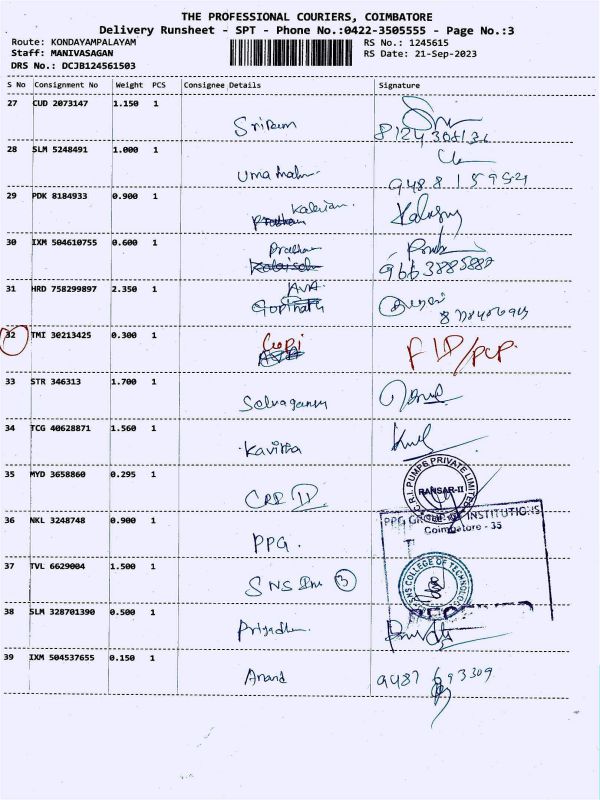 THE PROFESSIONAL COURIERS, COIMBATORE
Delivery Runsheet - SPT - Phone No.:0422-3505555 - Page No.:3
Route: KONDAYAMPALAYAM RS No.: 1245615
Staff: MANIVASAGAN RS Date: 21-Sep-2023
DRS No.: DCJB124561503
S No Consignment No Weight PCS Consignee Details Signature
27 CUD 2073147 1.150 1
Sriram
28 SLM 5248491 1.000 1
Uma
29 PDK 8184933 0.900 1
30 IXM 504610755 0.600 1
9663885887
31 HRD 758299897 2.350 1
Gopinath
32 TMI 30213425 0.300 1
Gopi FLP/PCP.
33 STR 346313 1.700 1
34 TCG 40628871 1.560 1
Kavitha
35 MYD 3658860 0.295 1
C.R.I. PUMPS PRIVATE LIMITED
RANSAR-II
36 NKL 3248748 0.900 1
PPG GROUP OF INSTITUTIONS
Coimbatore - 35
PPG.
37 TVL 6629004 1.500 1
SNS COLLEGE OF TECHNOLOGY
SNS 3
38 SLM 328701390 0.500 1
39 IXM 504537655 0.150 1
Anand 9487 693309